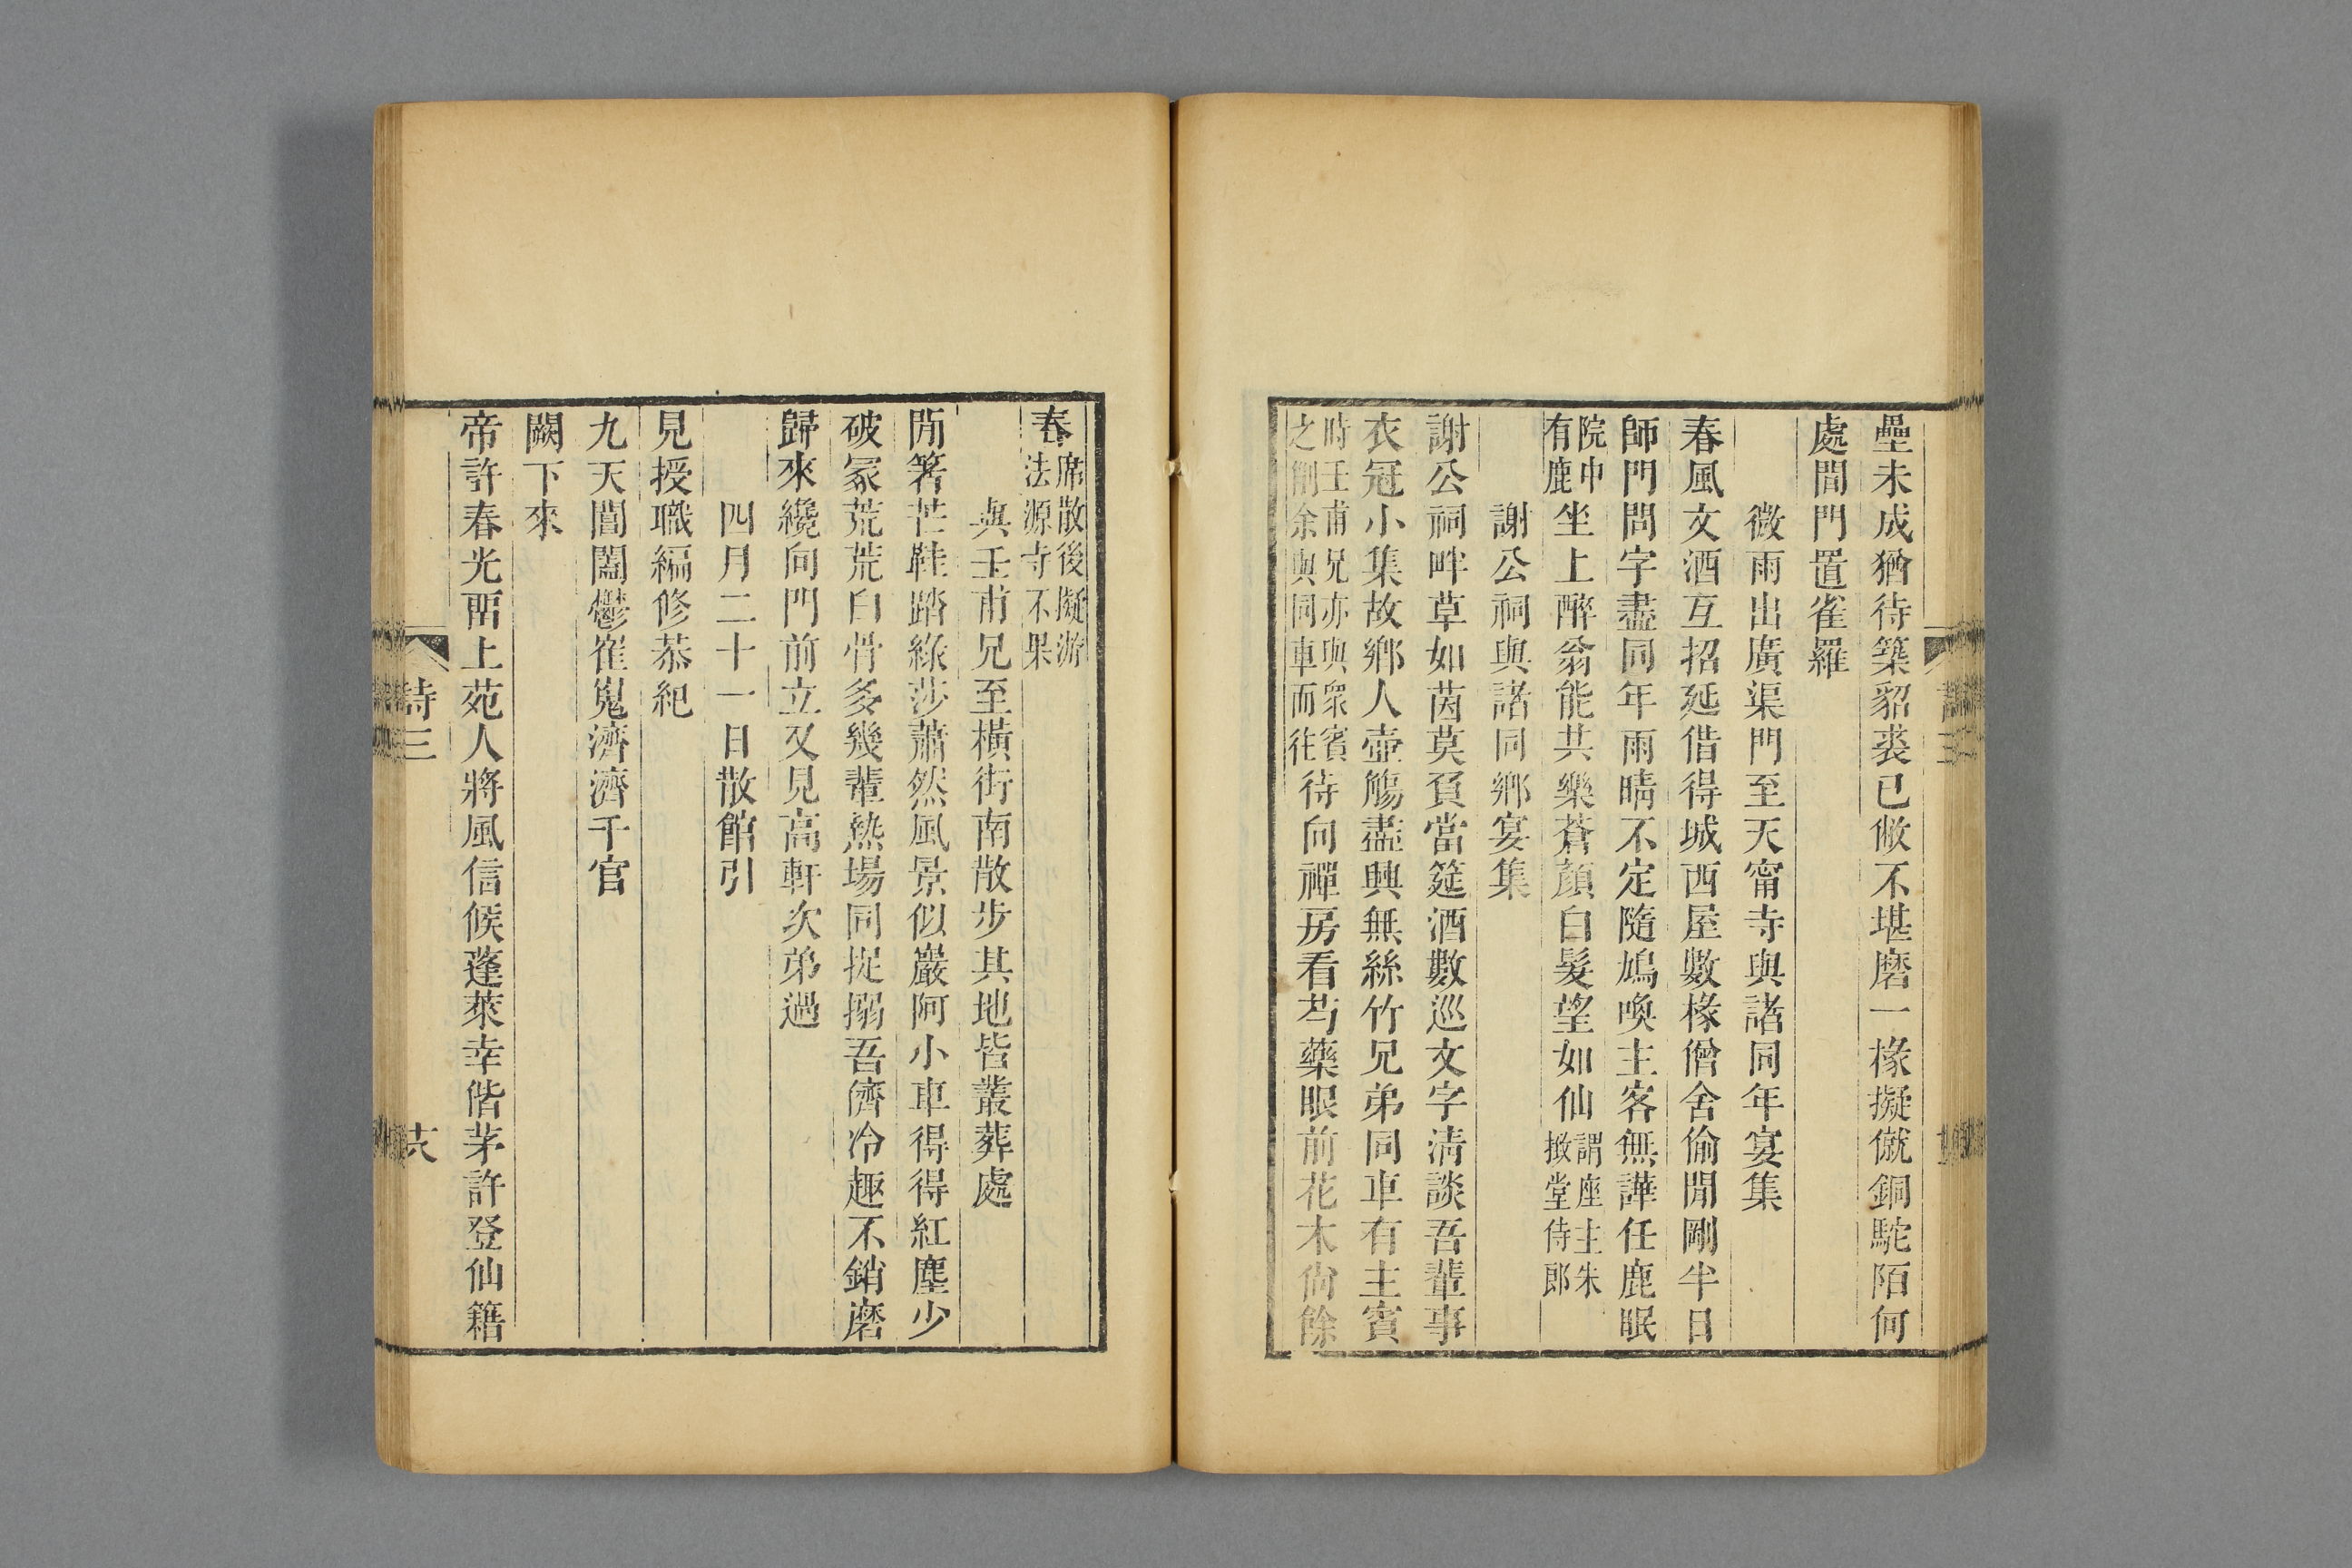 壘未成猶待築貂裘已敝不堪磨一椽擬僦銅駝陌何
處閶門置雀羅
微雨出廣渠門至天甯寺與諸同年宴集
春風文酒互招延借得城西屋數椽僧舍偷閒剛半日
師門問字盡同年雨晴不定隨鳩喚主客無譁任鹿眠
院中有鹿坐上醉翁能共樂蒼顏白髮望如仙謂座主朱掞堂侍郎
謝公祠與諸同鄉宴集
謝公祠畔草如茵莫負當筵酒數巡文字清談吾輩事
衣冠小集故鄉人壺觴盡興無絲竹兄弟同車有主賓
時壬甫兄亦與眾賓之剛余與同車而往待向禪房看芍藥眼前花木尚餘
春席散後擬游法源寺不果
與壬甫兄至橫街南散步其地皆叢葬處
閒箸芒鞋踏綠莎蕭然風景似巖阿小車得得紅塵少
破冢荒荒白骨多幾輩熱場同捉搦吾儕冷趣不銷磨
歸來纔向門前立又見高軒次弟過
四月二十一日散館引
見授職編修恭紀
九天閶闔鬱崔嵬濟濟千官
闕下來
帝許春光畱上苑人將風信候蓬萊幸偕茅許登仙籍
詩三
十六